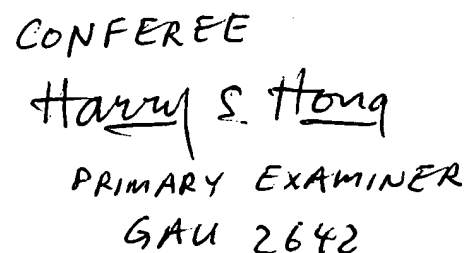 CONFEREE
Harry S. Hong
PRIMARY EXAMINER
GAU 2642